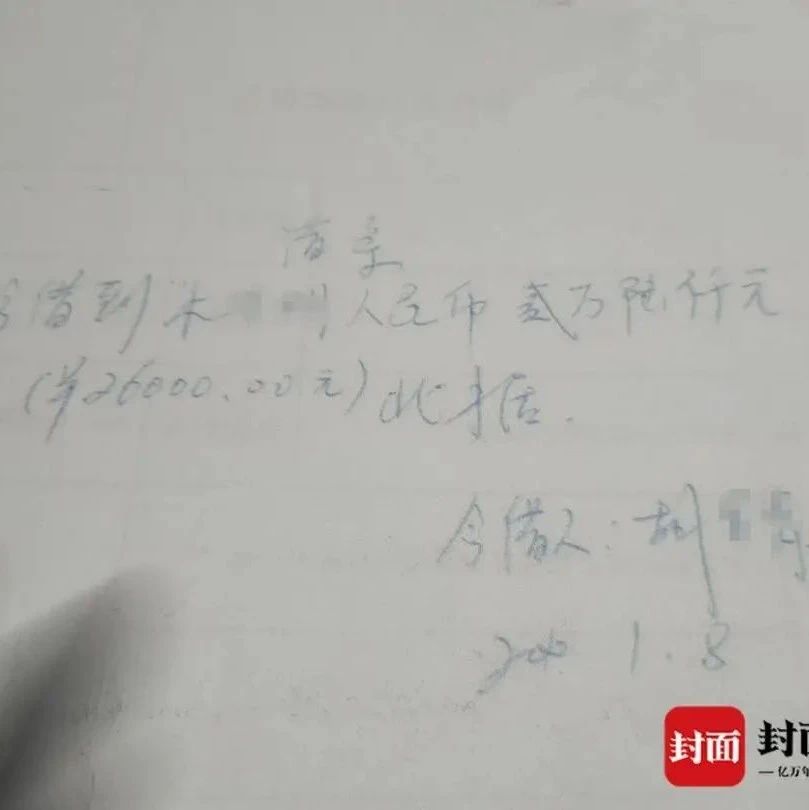 借条
今借到朱 人民币贰万陆仟元
(¥26000.00元)此据.
今借人:胡
1.8
封面
封面
—亿万年